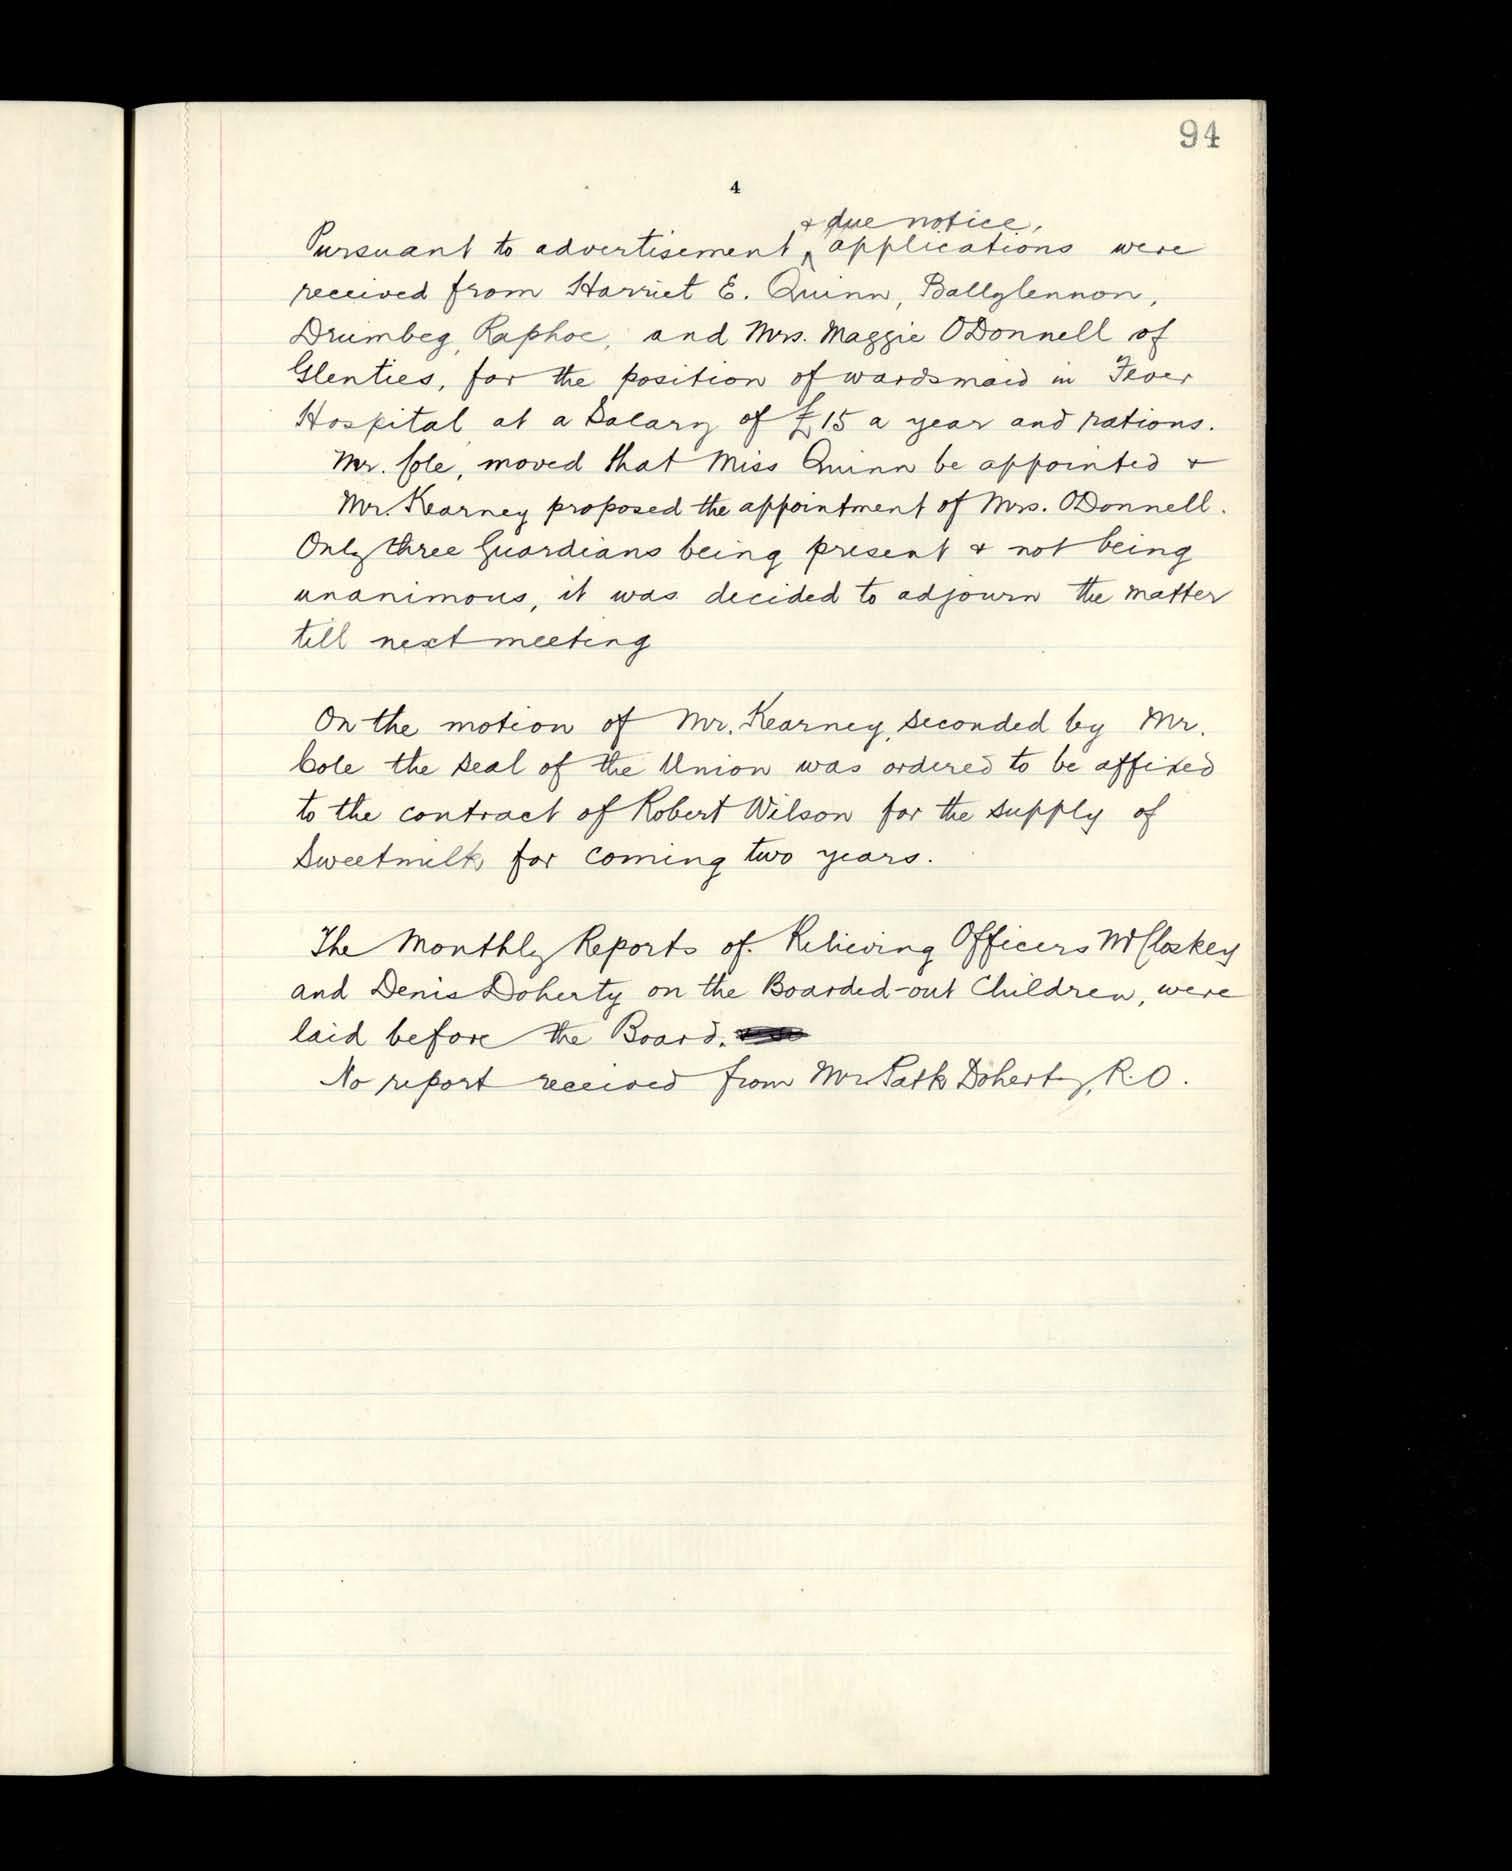 94
4
Pursuant to advertisement & due notice, applications were
received from Harriet E. Quinn, Ballylennon,
Drumbeg, Raphoe, and Mrs. Maggie ODonnell of
Glenties, for the position of wardsmaid in Fever
Hospital at a Salary of £15 a year and rations.
Mr. Cole, moved that Miss Quinn be appointed &
Mr. Kearney proposed the appointment of Mrs. ODonnell.
Only three Guardians being present & not being
unanimous, it was decided to adjourn the matter
till next meeting
On the motion of Mr. Kearney, seconded by Mr.
Cole the seal of the Union was ordered to be affixed
to the contract of Robert Wilson for the supply of
Sweetmilk for coming two years.
The Monthly Reports of Relieving Officers McCloskey
and Denis Doherty on the Boarded-out Children, were
laid before the Board.
No report received from Mr Patk Doherty, R.O.